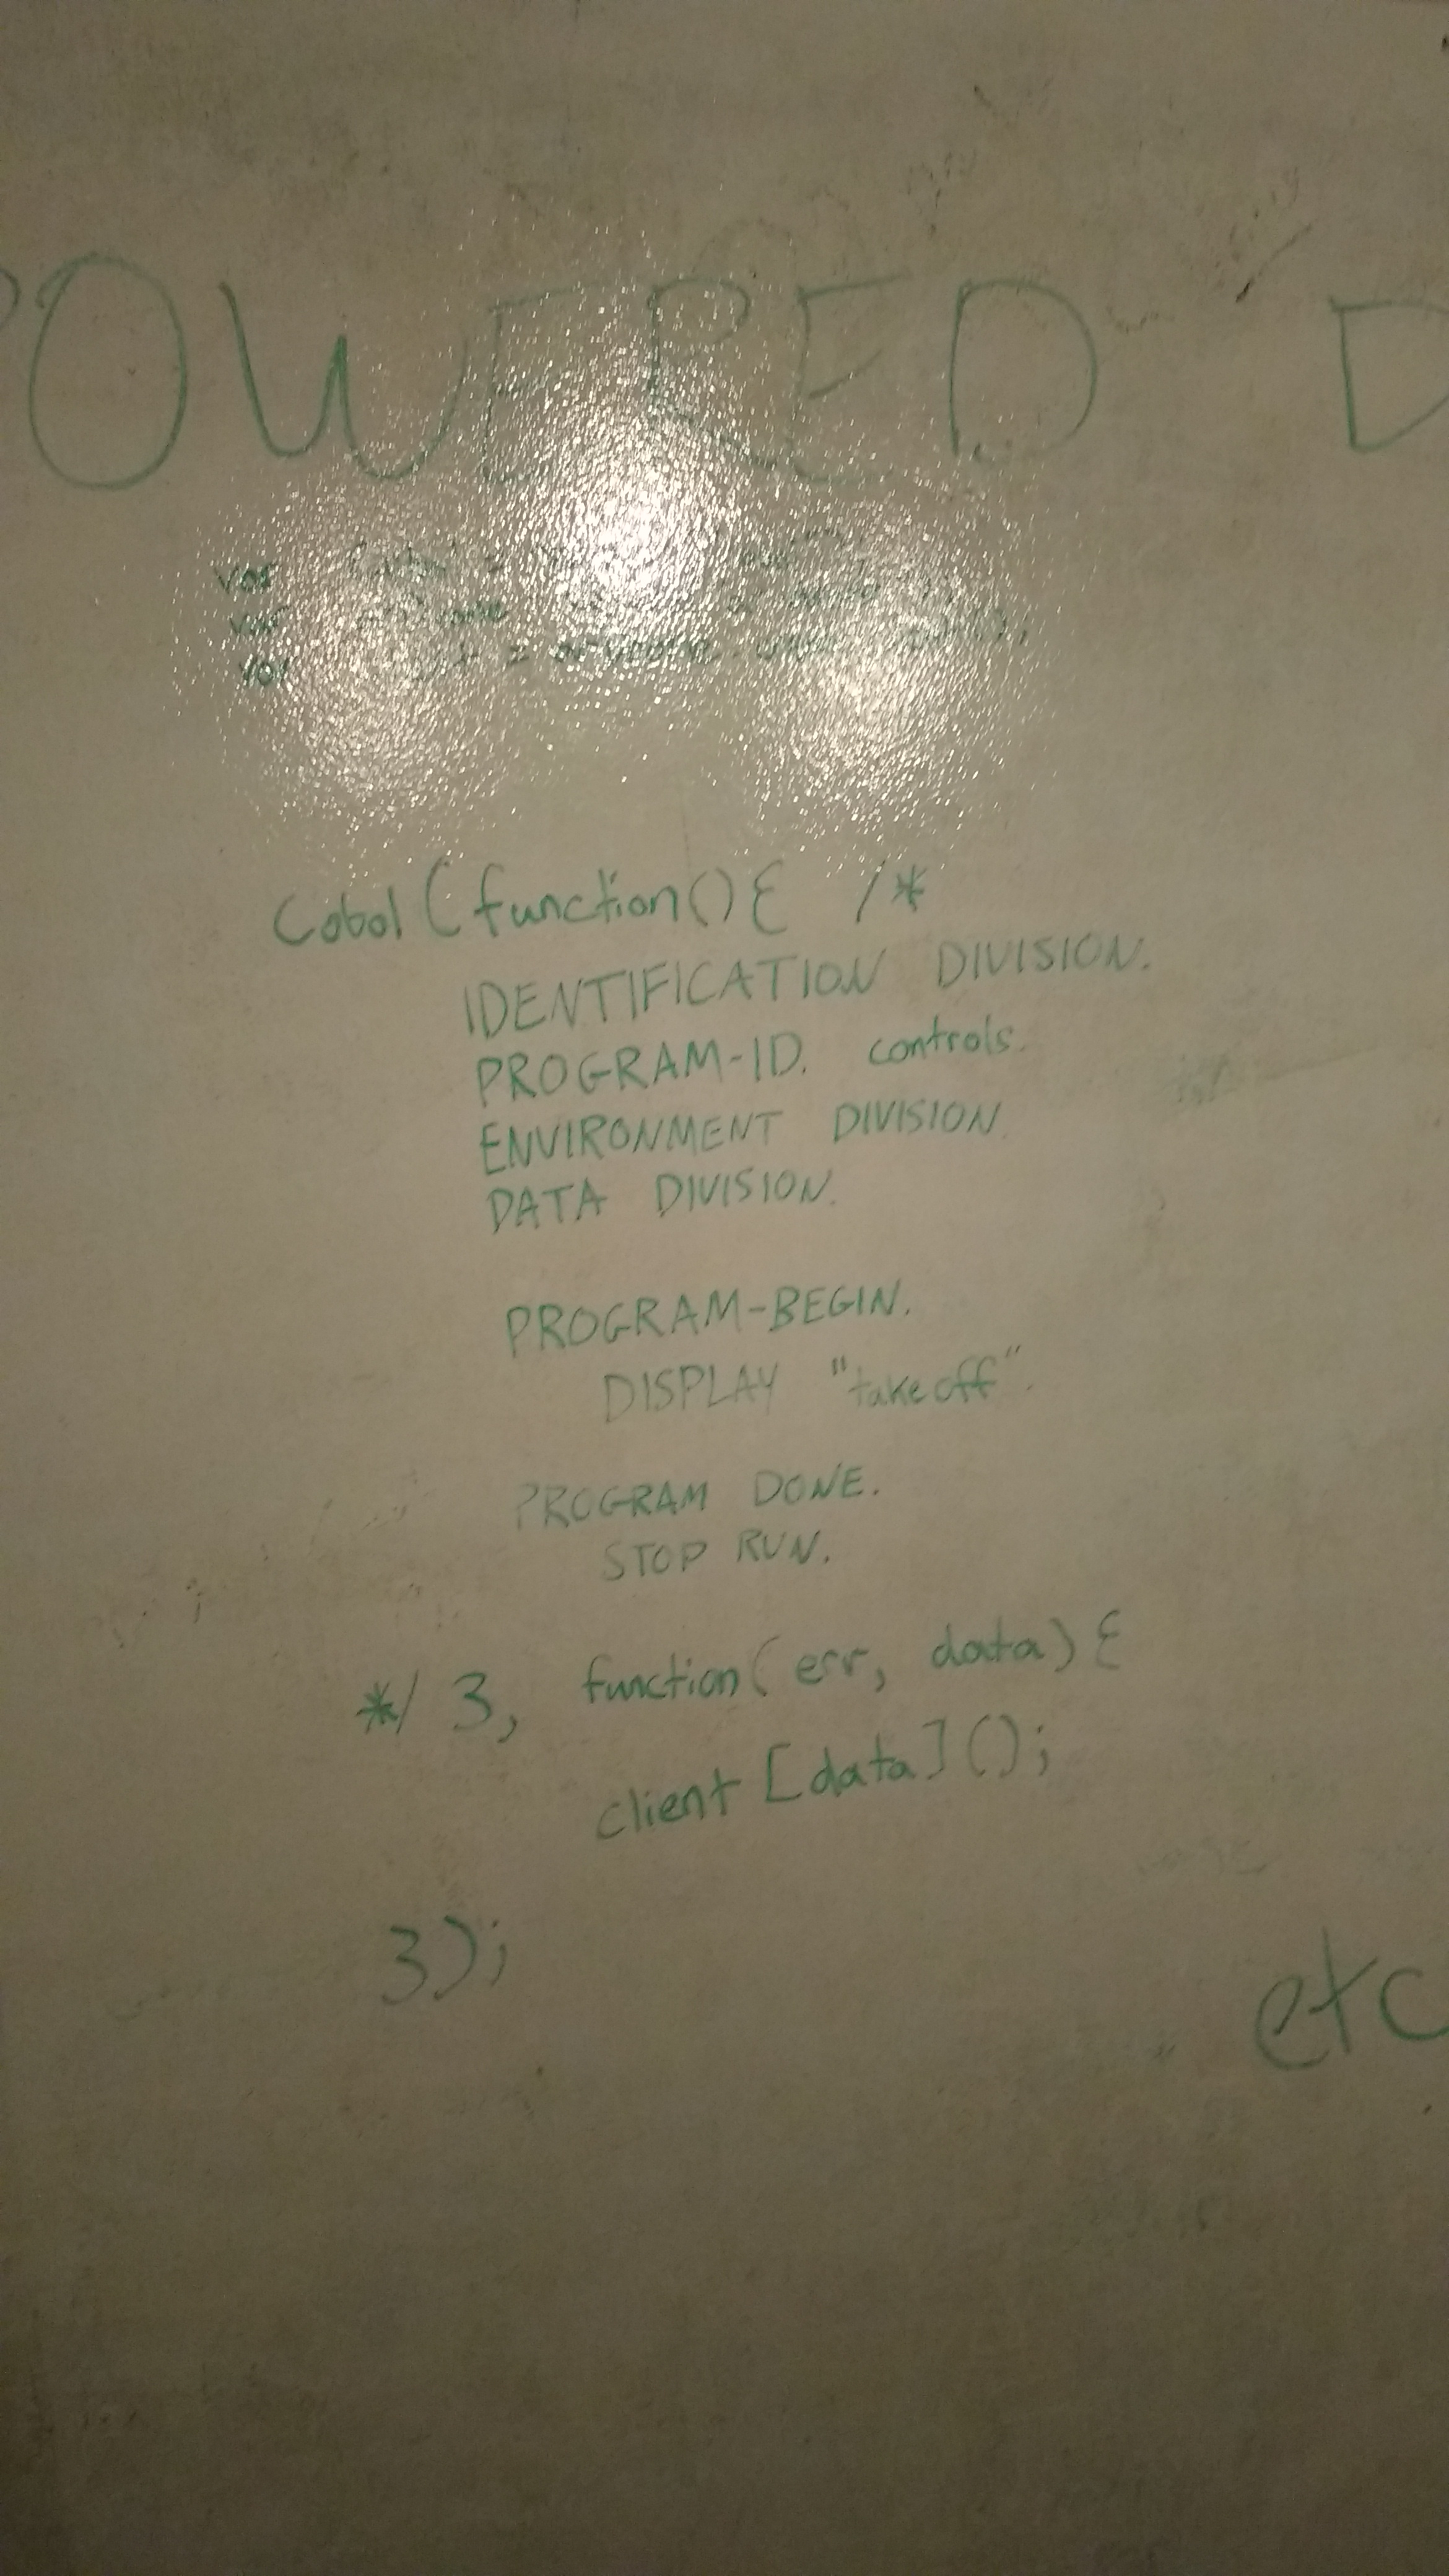 POWERED D
var
var
var = arDrone.
Cobol (function(){ /*
IDENTIFICATION DIVISION.
PROGRAM-ID. controls.
ENVIRONMENT DIVISION.
DATA DIVISION.
PROGRAM-BEGIN.
DISPLAY "takeoff".
PROGRAM DONE.
STOP RUN.
*/ }, function(err, data){
client [data]();
});
etc